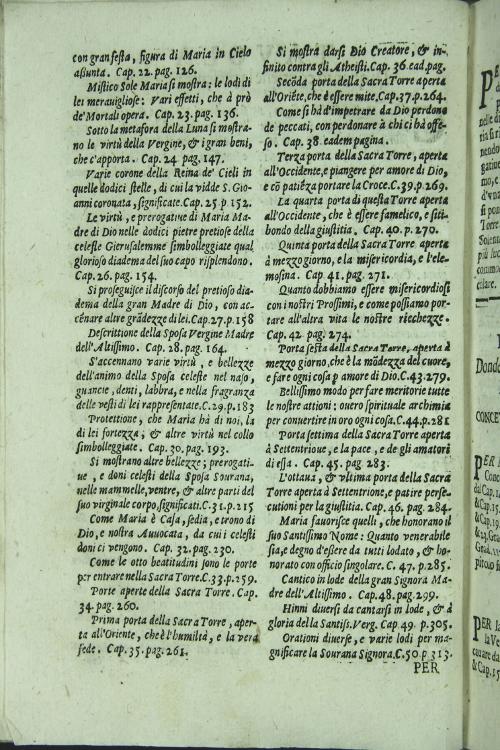 con gran festa, figura di Maria in Cielo
assunta. Cap. 22. pag. 126.
Mistico Sole Maria si mostra: le lodi di
lei meravigliose: Vari effetti, che à prò
de'Mortali opera. Cap. 23. pag. 136.
Sotto la metafora della Luna si mostra-
no le virtù della Vergine, & i gran beni,
che c'apporta. Cap. 24 pag. 147.
Varie corone della Reina de' Cieli in
quelle dodici stelle, di cui la vidde S. Gio-
anni coronata, significate. Cap. 25 p. 152.
Le virtù, e prerogative di Maria Ma-
dre di Dio nelle dodici pietre pretiose della
celeste Gierusalemme simboleggiate qual
glorioso diadema del suo capo risplendono.
Cap. 26. pag. 154.
Si proseguisce il discorso del pretioso dia-
dema della gran Madre di Dio, con ac-
cēnare altre grādezze di lei. Cap. 27. p. 158
Descrittione della Sposa Vergine Madre
dell'Altissimo. Cap. 28. pag. 164.
S'accennano varie virtù, e bellezze
dell'animo della Sposa celeste nel naso,
guancie, denti, labbra, e nella fragranza
delle vesti di lei rappresentate. C. 29. p. 183
Protettione, che Maria hà di noi, la
di lei fortezza; & altre virtù nel collo
simboleggiate. Cap. 30. pag. 193.
Si mostrano altre bellezze; prerogati-
ve, e doni celesti della Sposa Sourana,
nelle mammelle, ventre, & altre parti del
suo virginale corpo, significati. C. 31. p. 215
Come Maria è Casa, sedia, e trono di
Dio, e nostra Auuocata, da cui i celesti
doni ci vengono. Cap. 32. pag. 230.
Come le otto beatitudini sono le porte
per entrare nella Sacra Torre. C. 33. p. 259.
Porte aperte della Sacra Torre. Cap.
34. pag. 260.
Prima porta della Sacra Torre, aper-
ta all'Oriente, che è l'humiltà, e la vera
fede. Cap. 35. pag. 261.
Si mostra darsi Dio Creatore, & in-
finito contra gli Atheisti. Cap. 36. ead. pag.
Secōda porta della Sacra Torre aperta
all'Oriēte, che è essere mite. Cap. 37. p. 264.
Come si hà d'impetrare da Dio perdono
de peccati, con perdonare à chi ci hà offe-
so. Cap. 38. eadem pagina.
Terza porta della Sacra Torre, aperta
all'Occidente, e piangere per amor di Dio,
e cō patiēza portare la Croce. C. 39. p. 269.
La quarta porta di questa Torre aperta
all'Occidente, che è essere famelico, e siti-
bondo della giustitia. Cap. 40. p. 270.
Quinta porta della Sacra Torre aperta
à mezzo giorno, e la misericordia, e l'ele-
mosina. Cap. 41. pag. 271.
Quanto dobbiamo essere misericordiosi
con i nostri Prossimi, e come possiamo por-
tare all'altra vita le nostre ricchezze.
Cap. 42. pag. 274.
Porta sesta della Sacra Torre, aperta à
mezzo giorno, che è la mōdezza del cuore,
e fare ogni cosa p amore di Dio. C. 43. 279.
Bellissimo modo per fare meritorie tutte
le nostre attioni: overo spirituale archimia
per convertire in oro ogni cosa. C. 44. p. 281
Porta settima della Sacra Torre aperta
à Settentrione, e la pace, e de gli amatori
di essa. Cap. 45. pag 283.
L'ottaua, & vltima porta della Sacra
Torre aperta à Settentrione, e patire perse-
cutioni per la giustitia. Cap. 46. pag. 284.
Maria fauorisce quelli, che honorano il
suo Santissimo Nome: Quanto venerabile
sia, e degno d'essere da tutti lodato, & ho-
norato con officio singolare. C. 47. p. 285.
Cantico in lode della gran Signora Ma-
dre dell'Altissimo. Cap. 48. pag. 299.
Hinni diuersi da cantarsi in lode, & à
gloria della Santiss. Verg. Cap 49. p. 305.
Orationi diuerse, e varie lodi per ma-
gnificare la Sourana Signora. C. 50. p. 313.
PER